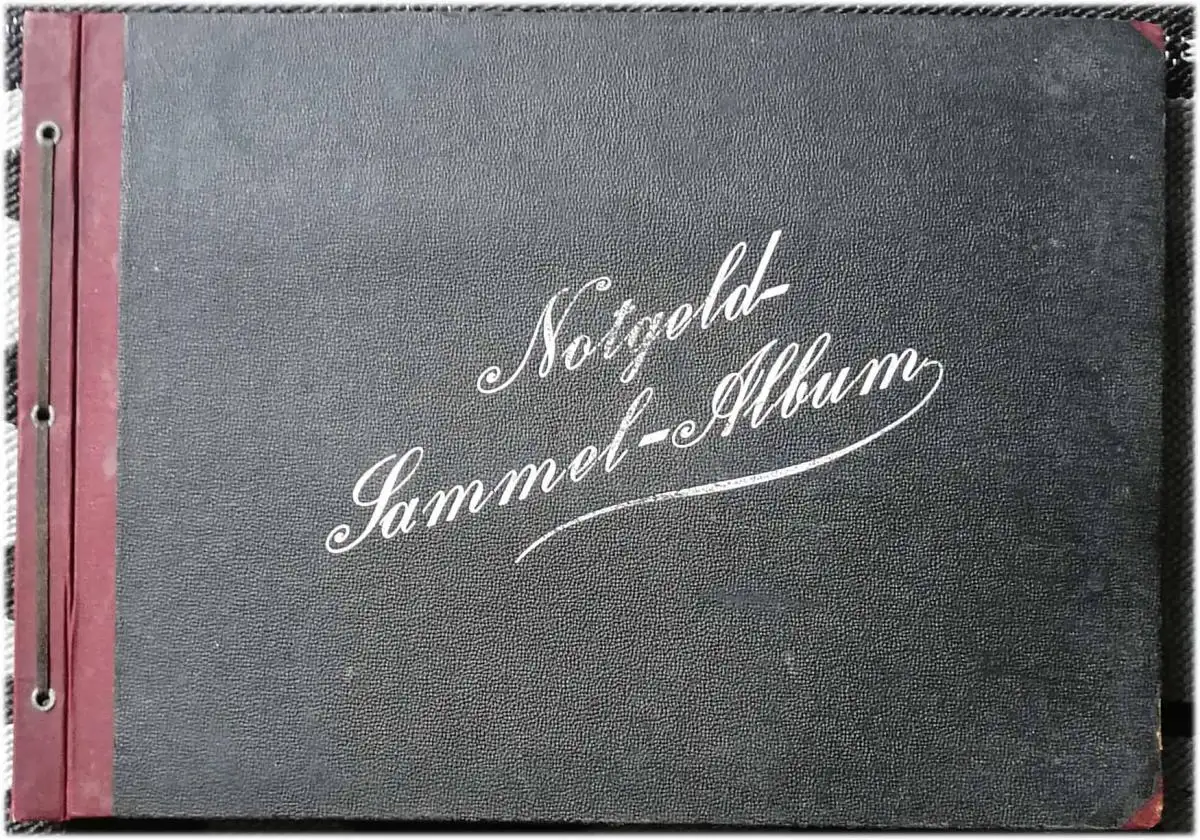 Notgeld-
Sammel-Album